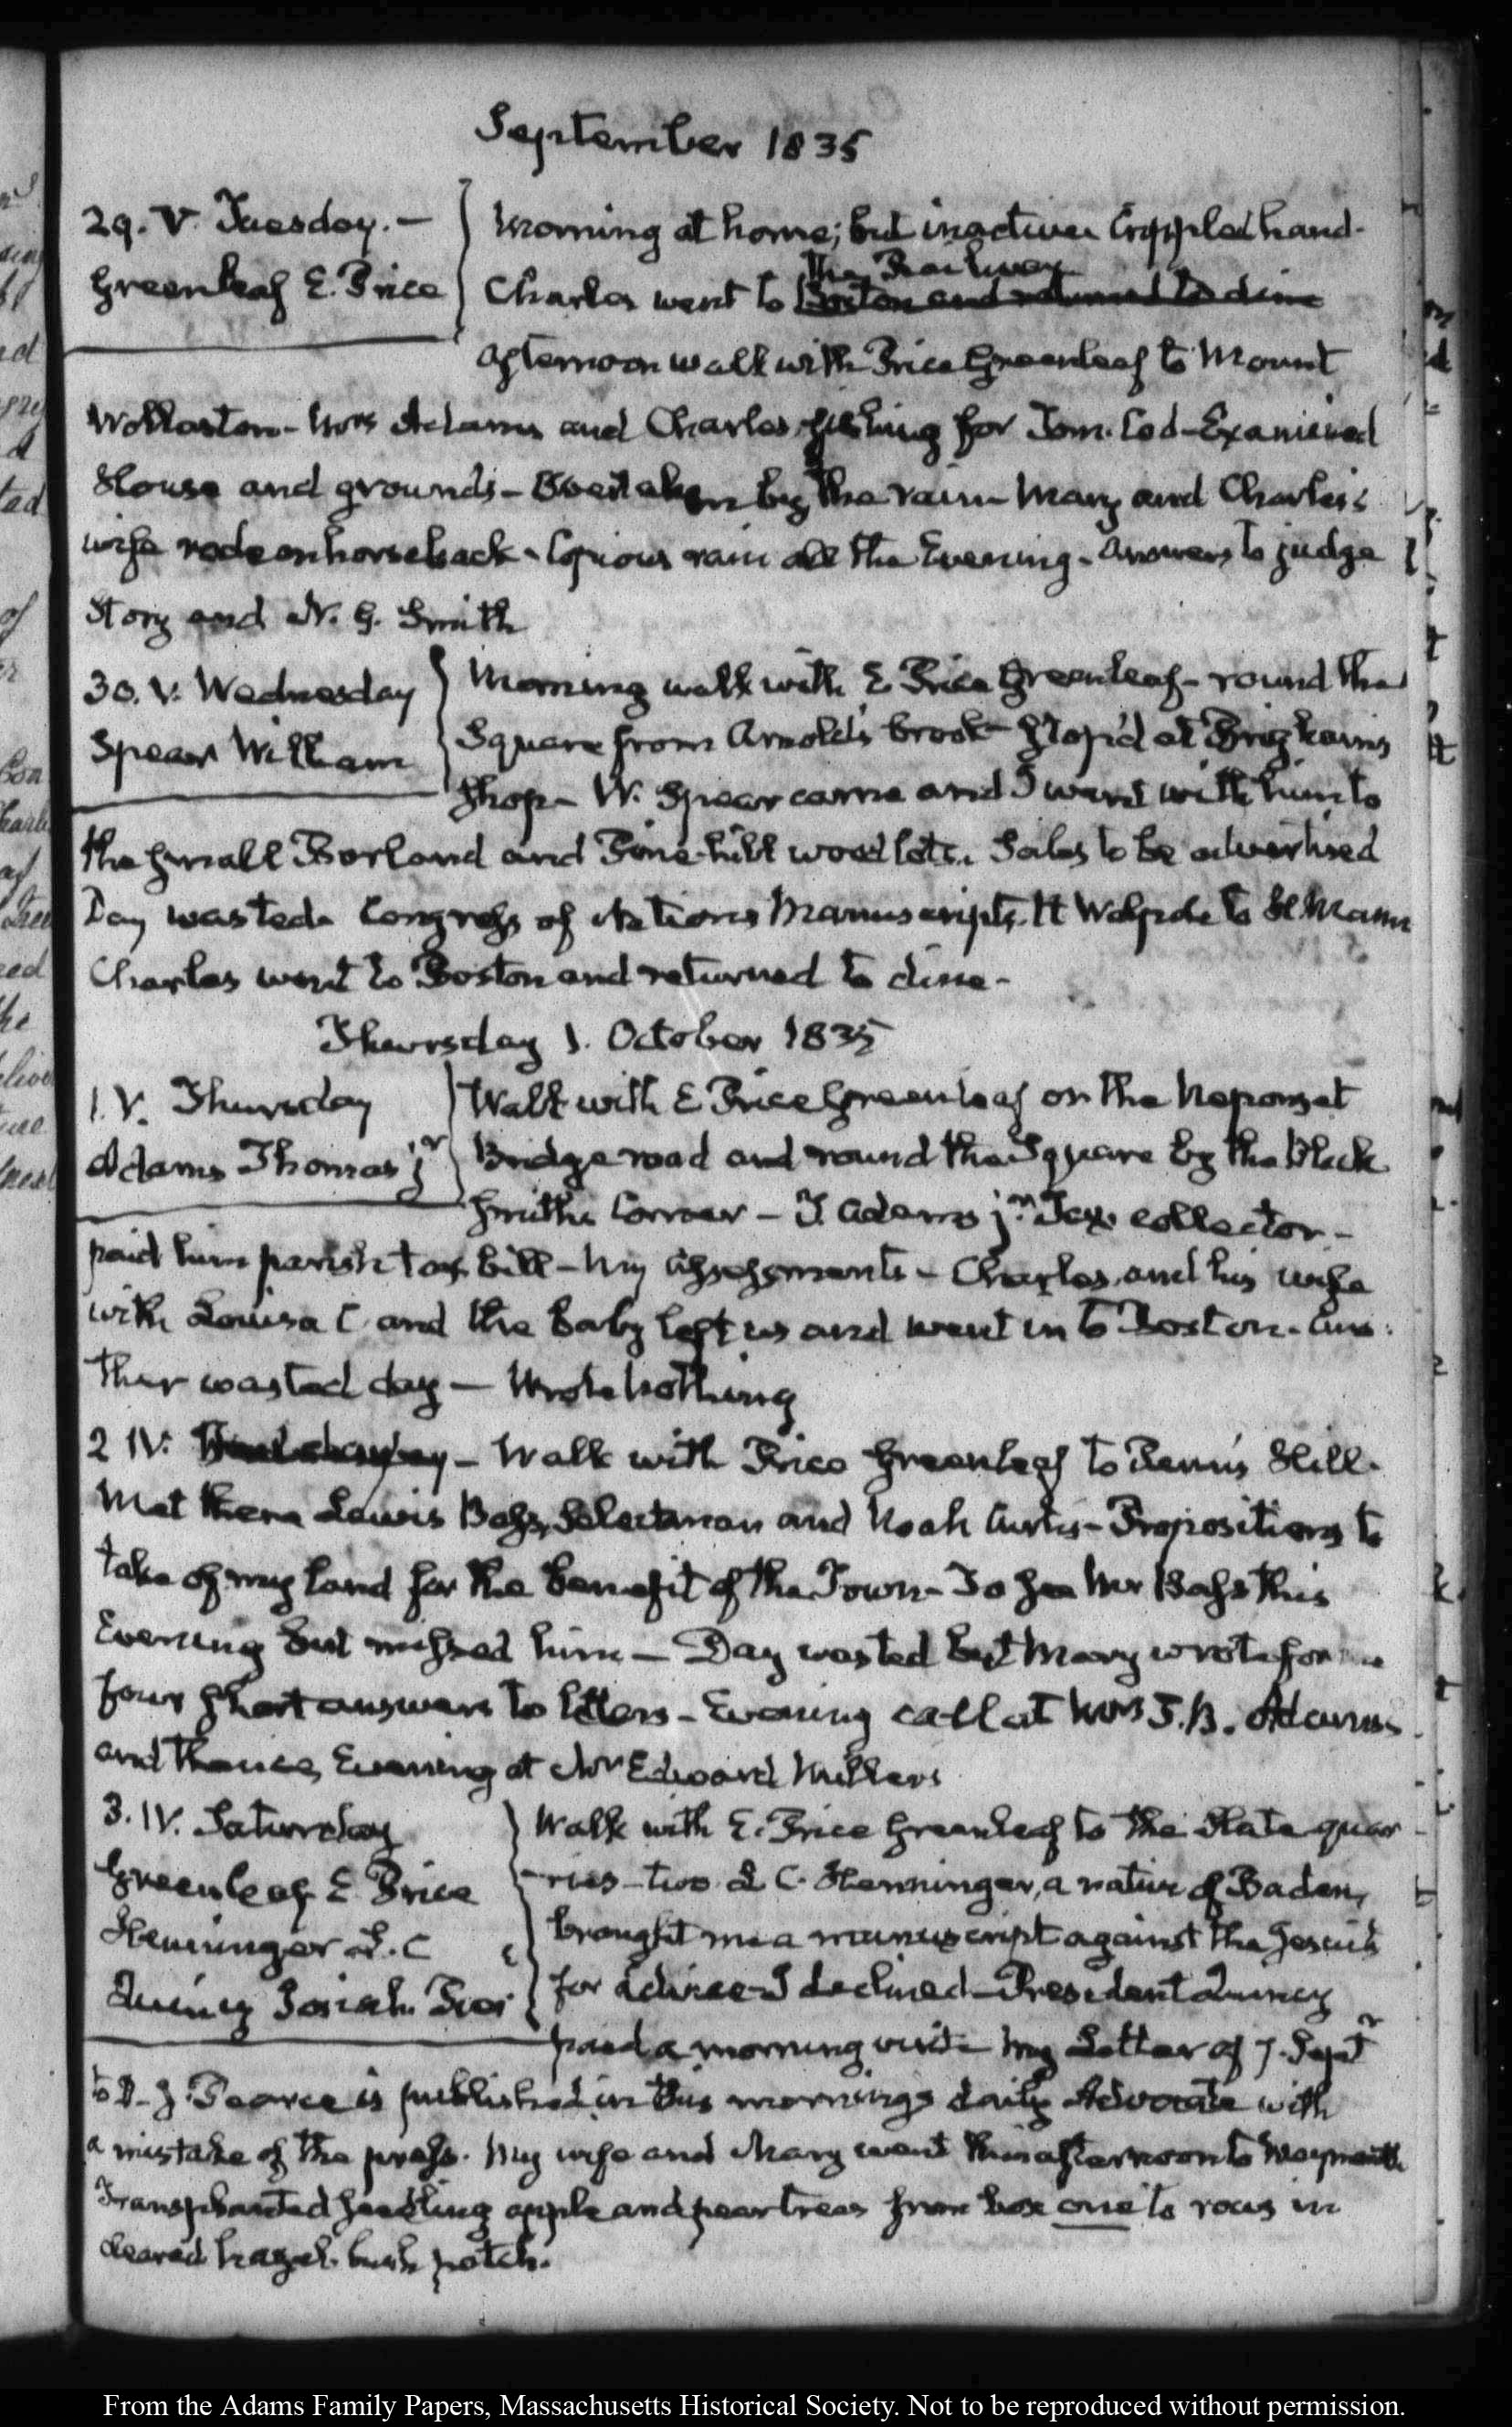 September 1835
29. V. Tuesday. —
Greenleaf E. Price
Morning at home; but inactive. Crippled hand.
The Railway
Charles went to Boston and returned to dine
Afternoon walk with Price Greenleaf to Mount
Wollaston - Mrs Adams and Charles fishing for Tom. Cod - Examined
House and grounds - Overtaken by the rain - Mary and Charles's
wife rode on horseback - Copious rain all the Evening - Answers to judge
Story and N. G. Smith
30. V. Wednesday
Spear William
Morning walk with E Price Greenleaf - round the
Square from Arnold's brook - stop'd at Brigham's
shop - W. Spear came and I went with him to
the small Borland and Pine-hill wood lots. Sales to be advertised
Day wasted. Congress of Nations Manuscripts. H Walpole to H. Mann
Charles went to Boston and returned to dine -
Thursday 1. October 1835
1. V. Thursday
Adams Thomas jr
Walk with E Price Greenleaf on the Neponset
Bridge road and round the Square by the Black
smiths Corner - T. Adams jr. Tax collector -
paid him parish tax bill - My assessments - Charles and his wife
with Louisa C and the baby left us and went in to Boston. Ano-
ther wasted day — Wrote nothing
2 IV. - Walk with Price Greenleaf to Penn's Hill.
Met there Lewis Bass, Selectman and Noah Curtis - Propositions to
take of my land for the benefit of the Town - To see Mr Bass this
Evening but missed him — Day wasted but Mary wrote for me
four short answers to letters - Evening call at Mrs T. B. Adams's
and thence, Evening at Mr Edward Millers
3. IV. Saturday
Greenleaf E Price
Henninger L. C
Quincy Josiah
Walk with E. Price Greenleaf to the Slate quar-
ries - two. L C. Henninger, a native of Baden,
brought me a manuscript against the Jesuits
for advice - I declined - President Quincy
paid a morning visit - My Letter of 7. Septr
to D. J. Pearce is published in this mornings daily Advocate with
a mistake of the press. My wife and Mary went this afternoon to Weymouth
Transplanted seedling apple and pear trees from box one to rows in
cleared hazel-bush patch.
From the Adams Family Papers, Massachusetts Historical Society. Not to be reproduced without permission.